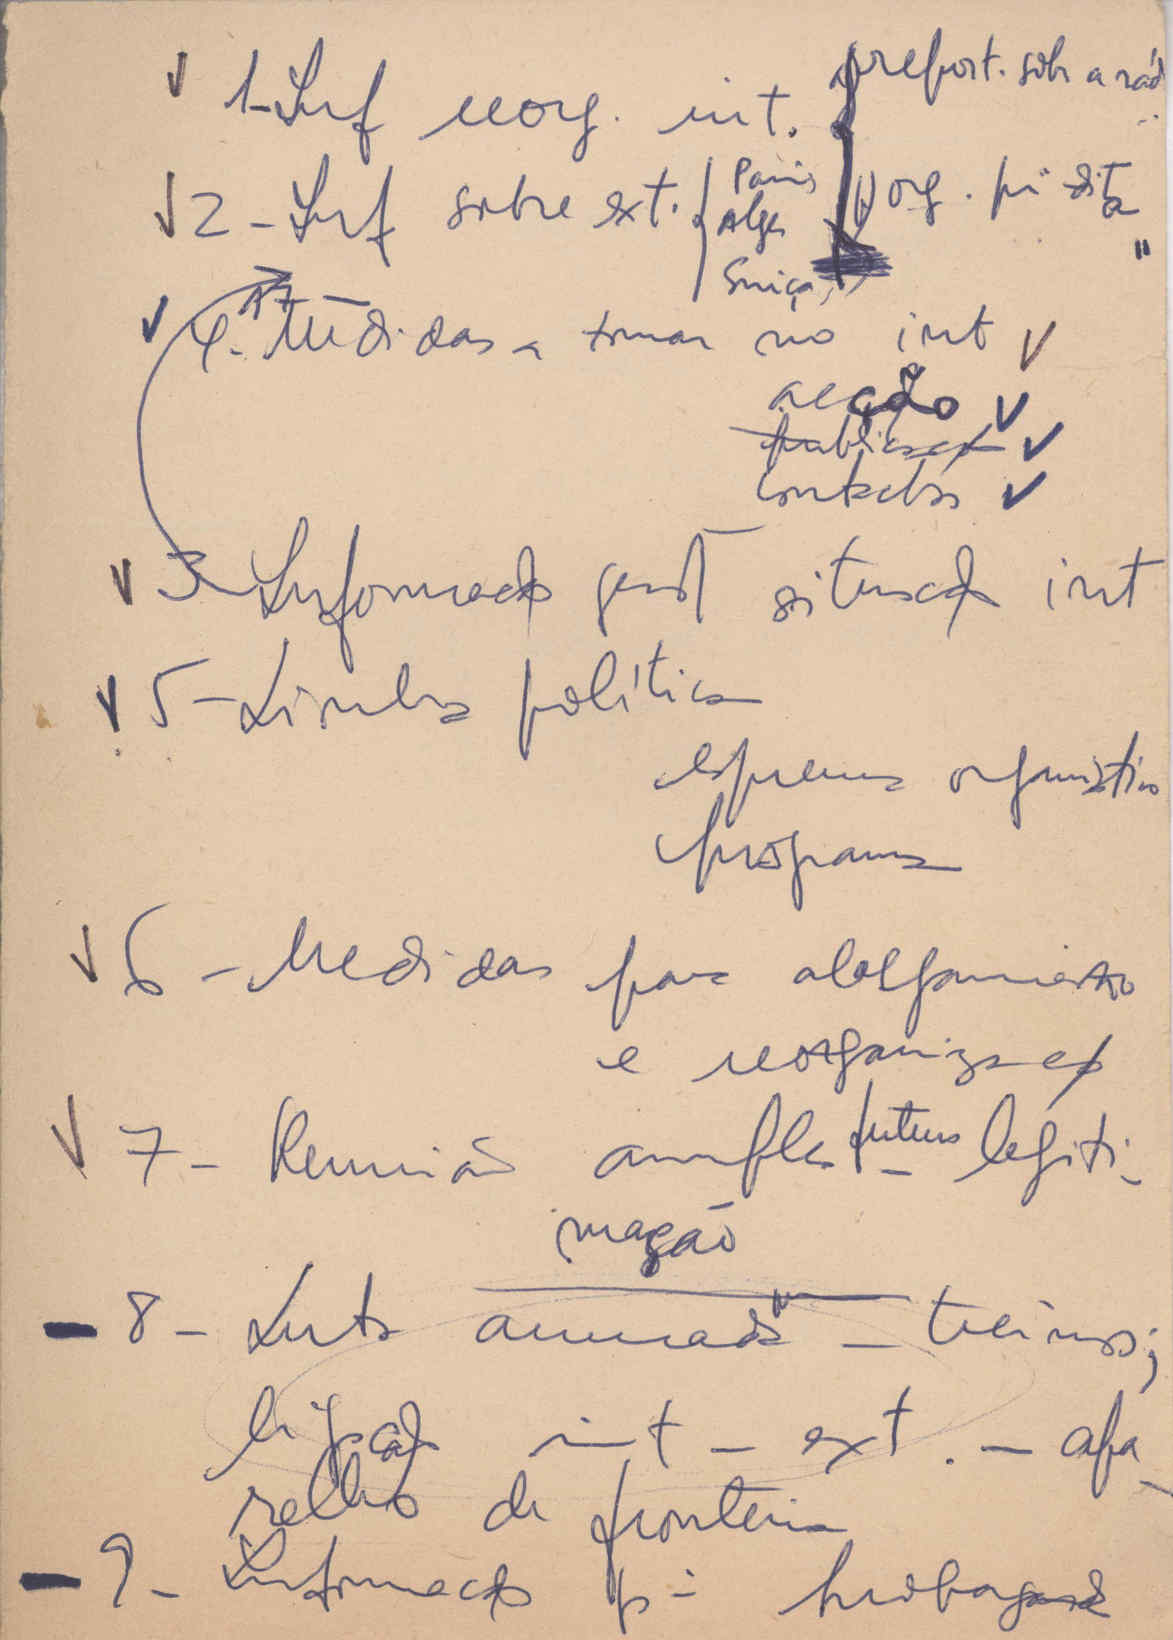 1 - Inf reorg. int. { prefort. sobr a rád
2 - Inf sobre ext. { Paris
Alger
Suiça
org. pi dita
"
4 - Medidas a tomar no int
acção
publicaç
contactos
3 - Informação geral situação int
5 - Linha política
esquema organizativo
programa
6 - Medidas para alargamento
e reorganizaç
7 - Reunião ampla futura - legiti-
mação
8 - Luta armada - treinos;
ligação int - ext. - apa-
relho de fronteira
9 - Informação p - propaganda